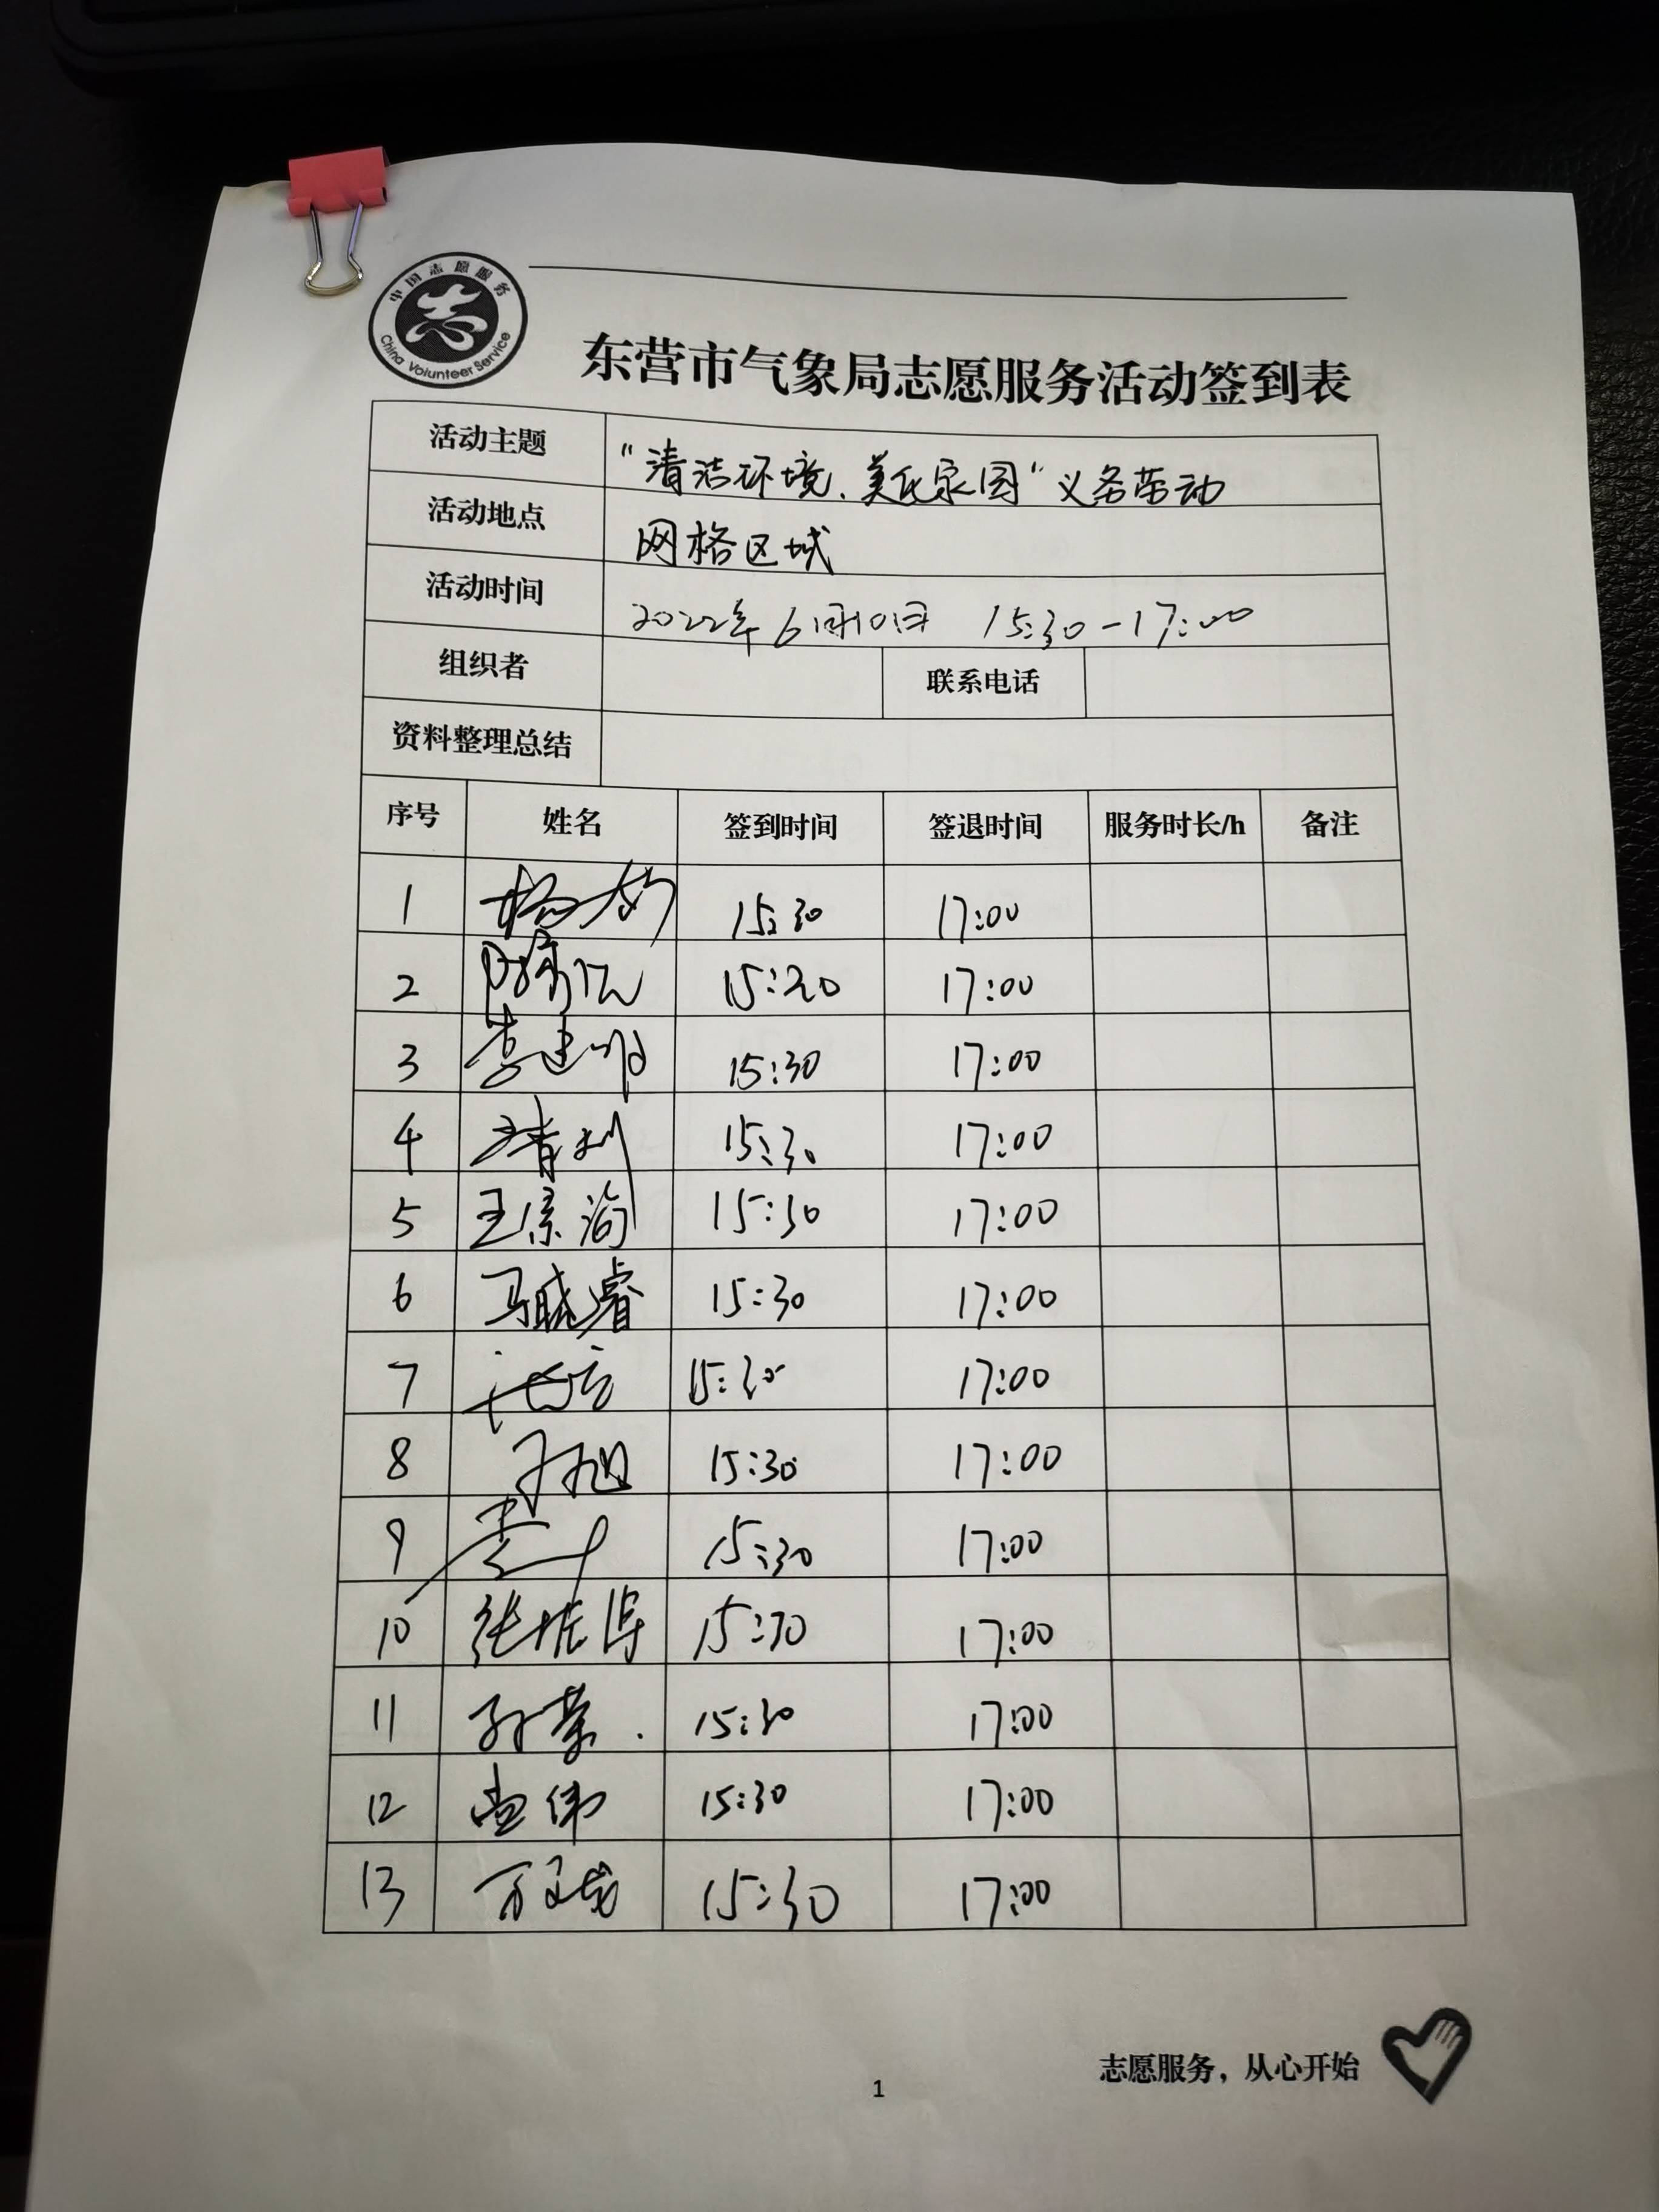 中国志愿服务
China Volunteer Service
东营市气象局志愿服务活动签到表
活动主题 "清洁环境、美化家园"义务劳动
活动地点 网格区域
活动时间 2022年6月10日 15:30-17:00
组织者 联系电话
资料整理总结
序号 姓名 签到时间 签退时间 服务时长/h 备注
1 15:30 17:00
2 15:30 17:00
3 李建 15:30 17:00
4 15:30 17:00
5 王景洵 15:30 17:00
6 马晓睿 15:30 17:00
7 15:30 17:00
8 于旭 15:30 17:00
9 15:30 17:00
10 张振 15:30 17:00
11 孙荣 15:30 17:00
12 孟伟 15:30 17:00
13 15:30 17:00
志愿服务，从心开始
1